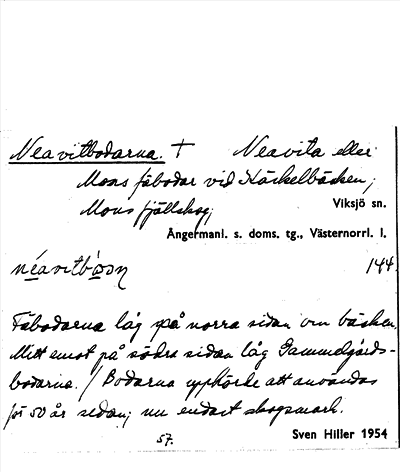 Neavitbodarna. † Neavita eller
Mons fäbodar vid Häckelbäcken;
Mons fjällskog; Viksjö sn.
Ångermanl. s. doms. tg., Västernorrl. l.
néavitbòɷn 144.
Fäbodarna låg på norra sidan om bäcken.
Mitt emot på södra sidan låg Gammelgårds-
bodarna. / Bodarna upphörde att användas
för 50 år sedan; nu endast skogsmark.
57. Sven Hiller 1954